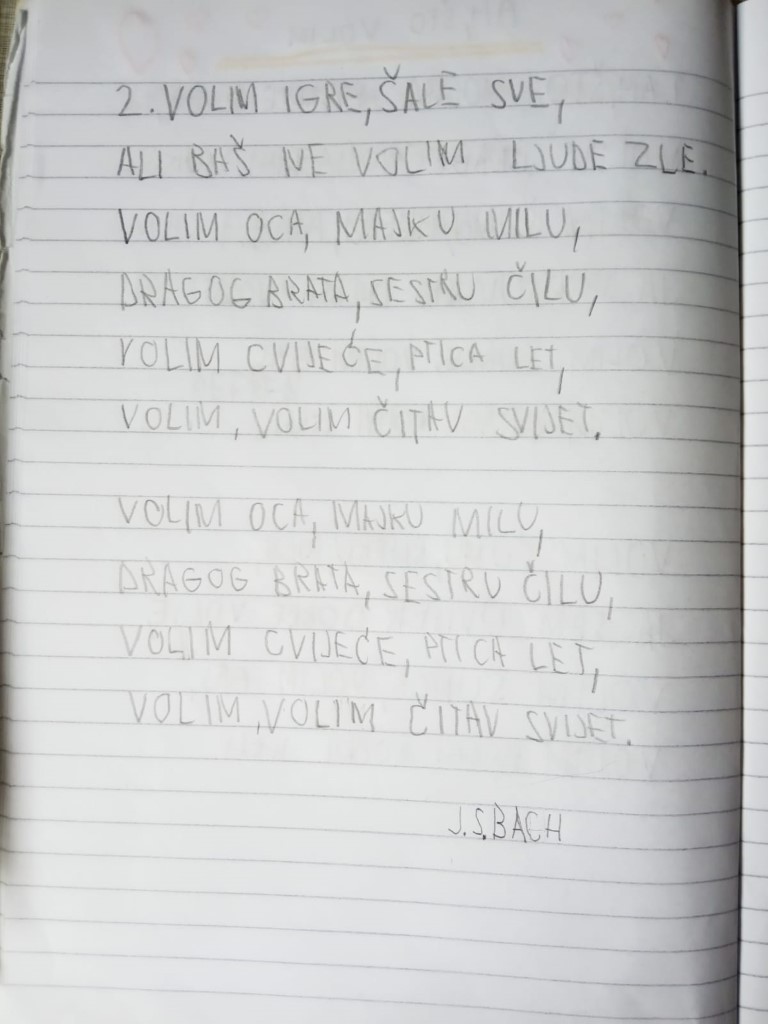 2. VOLIM IGRE, ŠALE SVE,
ALI BAŠ NE VOLIM LJUDE ZLE.
VOLIM OCA, MAJKU MILU,
DRAGOG BRATA, SESTRU ČILU,
VOLIM CVIJEĆE, PTICA LET,
VOLIM, VOLIM ČITAV SVIJET.
VOLIM OCA, MAJKU MILU,
DRAGOG BRATA, SESTRU ČILU,
VOLIM CVIJEĆE, PTICA LET,
VOLIM, VOLIM ČITAV SVIJET.
J.S.BACH